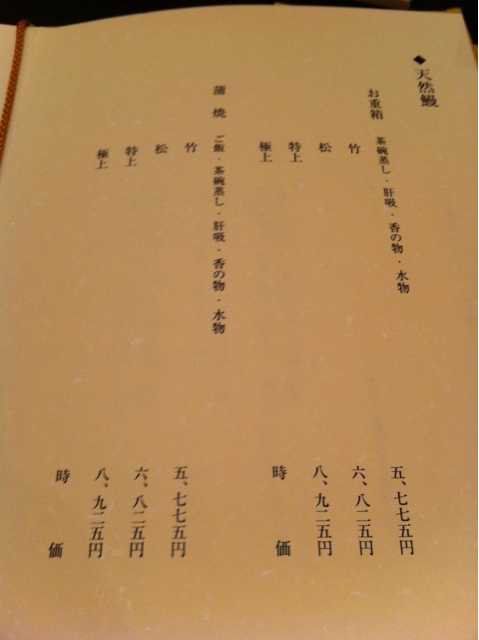 ◆天然鰻
お重箱 茶碗蒸し・肝吸・香の物・水物
竹 五、七七五円
松 六、八二五円
特上 八、九二五円
極上 時価
蒲焼 ご飯・茶碗蒸し・肝吸・香の物・水物
竹 五、七七五円
松 六、八二五円
特上 八、九二五円
極上 時価